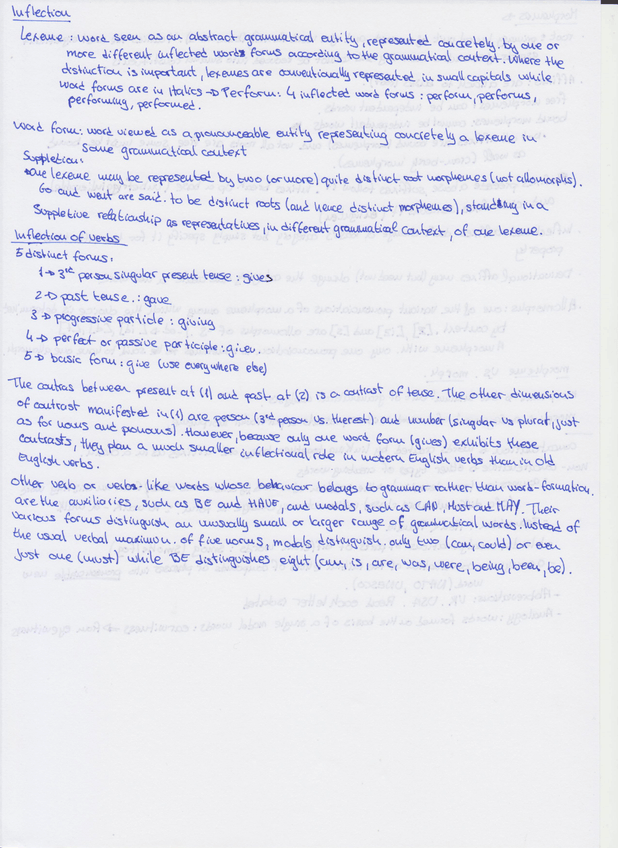 Inflection
Lexeme : word seen as an abstract grammatical entity, represented concretely. by one or
more different inflected words forms according to the grammatical context. Where the
distinction is important, lexemes are conventionally represented in small capitals while
word forms are in Italics → Perform: 4 inflected word forms : perform, performs,
performing, performed.
Word form: word viewed as a pronounceable entity representing concretely a lexeme in
some grammatical context
Suppletion:
One lexeme may be represented by two (or more) quite distinct root morphemes (not allomorphs).
Go and went are said. to be distinct roots (and hence distinct morphemes), standing in a
Suppletive relationship as representatives, in different grammatical context, of one lexeme.
Inflection of verbs
5 distinct forms:
1 → 3rd person singular present tense : gives
2 → past tense. : gave
3 → progressive participle : giving
4 → perfect or passive participle : given.
5 → basic form : give (use everywhere else)
The contras between present at (1) and past at (2) is a contrast of tense. The other dimensions
of contrast manifested in (1) are person (3rd person vs. the rest) and number (singular vs plural, just
as for nouns and pronouns). However, because only one word form (gives) exhibits these
contrasts, they plan a much smaller inflectional role in modern English verbs than in old
English verbs.
Other verb or verb- like words whose behaviour belongs to grammar rather than word-formation,
are the auxiliaries, such as BE and HAVE, and modals, such as CAD, Must and MAY. Their
various forms distinguish an unusually small or larger range of gramatical words. Instead of
the usual verbal maximun. of five worms, modals distinguish. only two (can, could) or even
just one (must) while BE distinguishes eight (am, is, are, was, were, being, been, be).